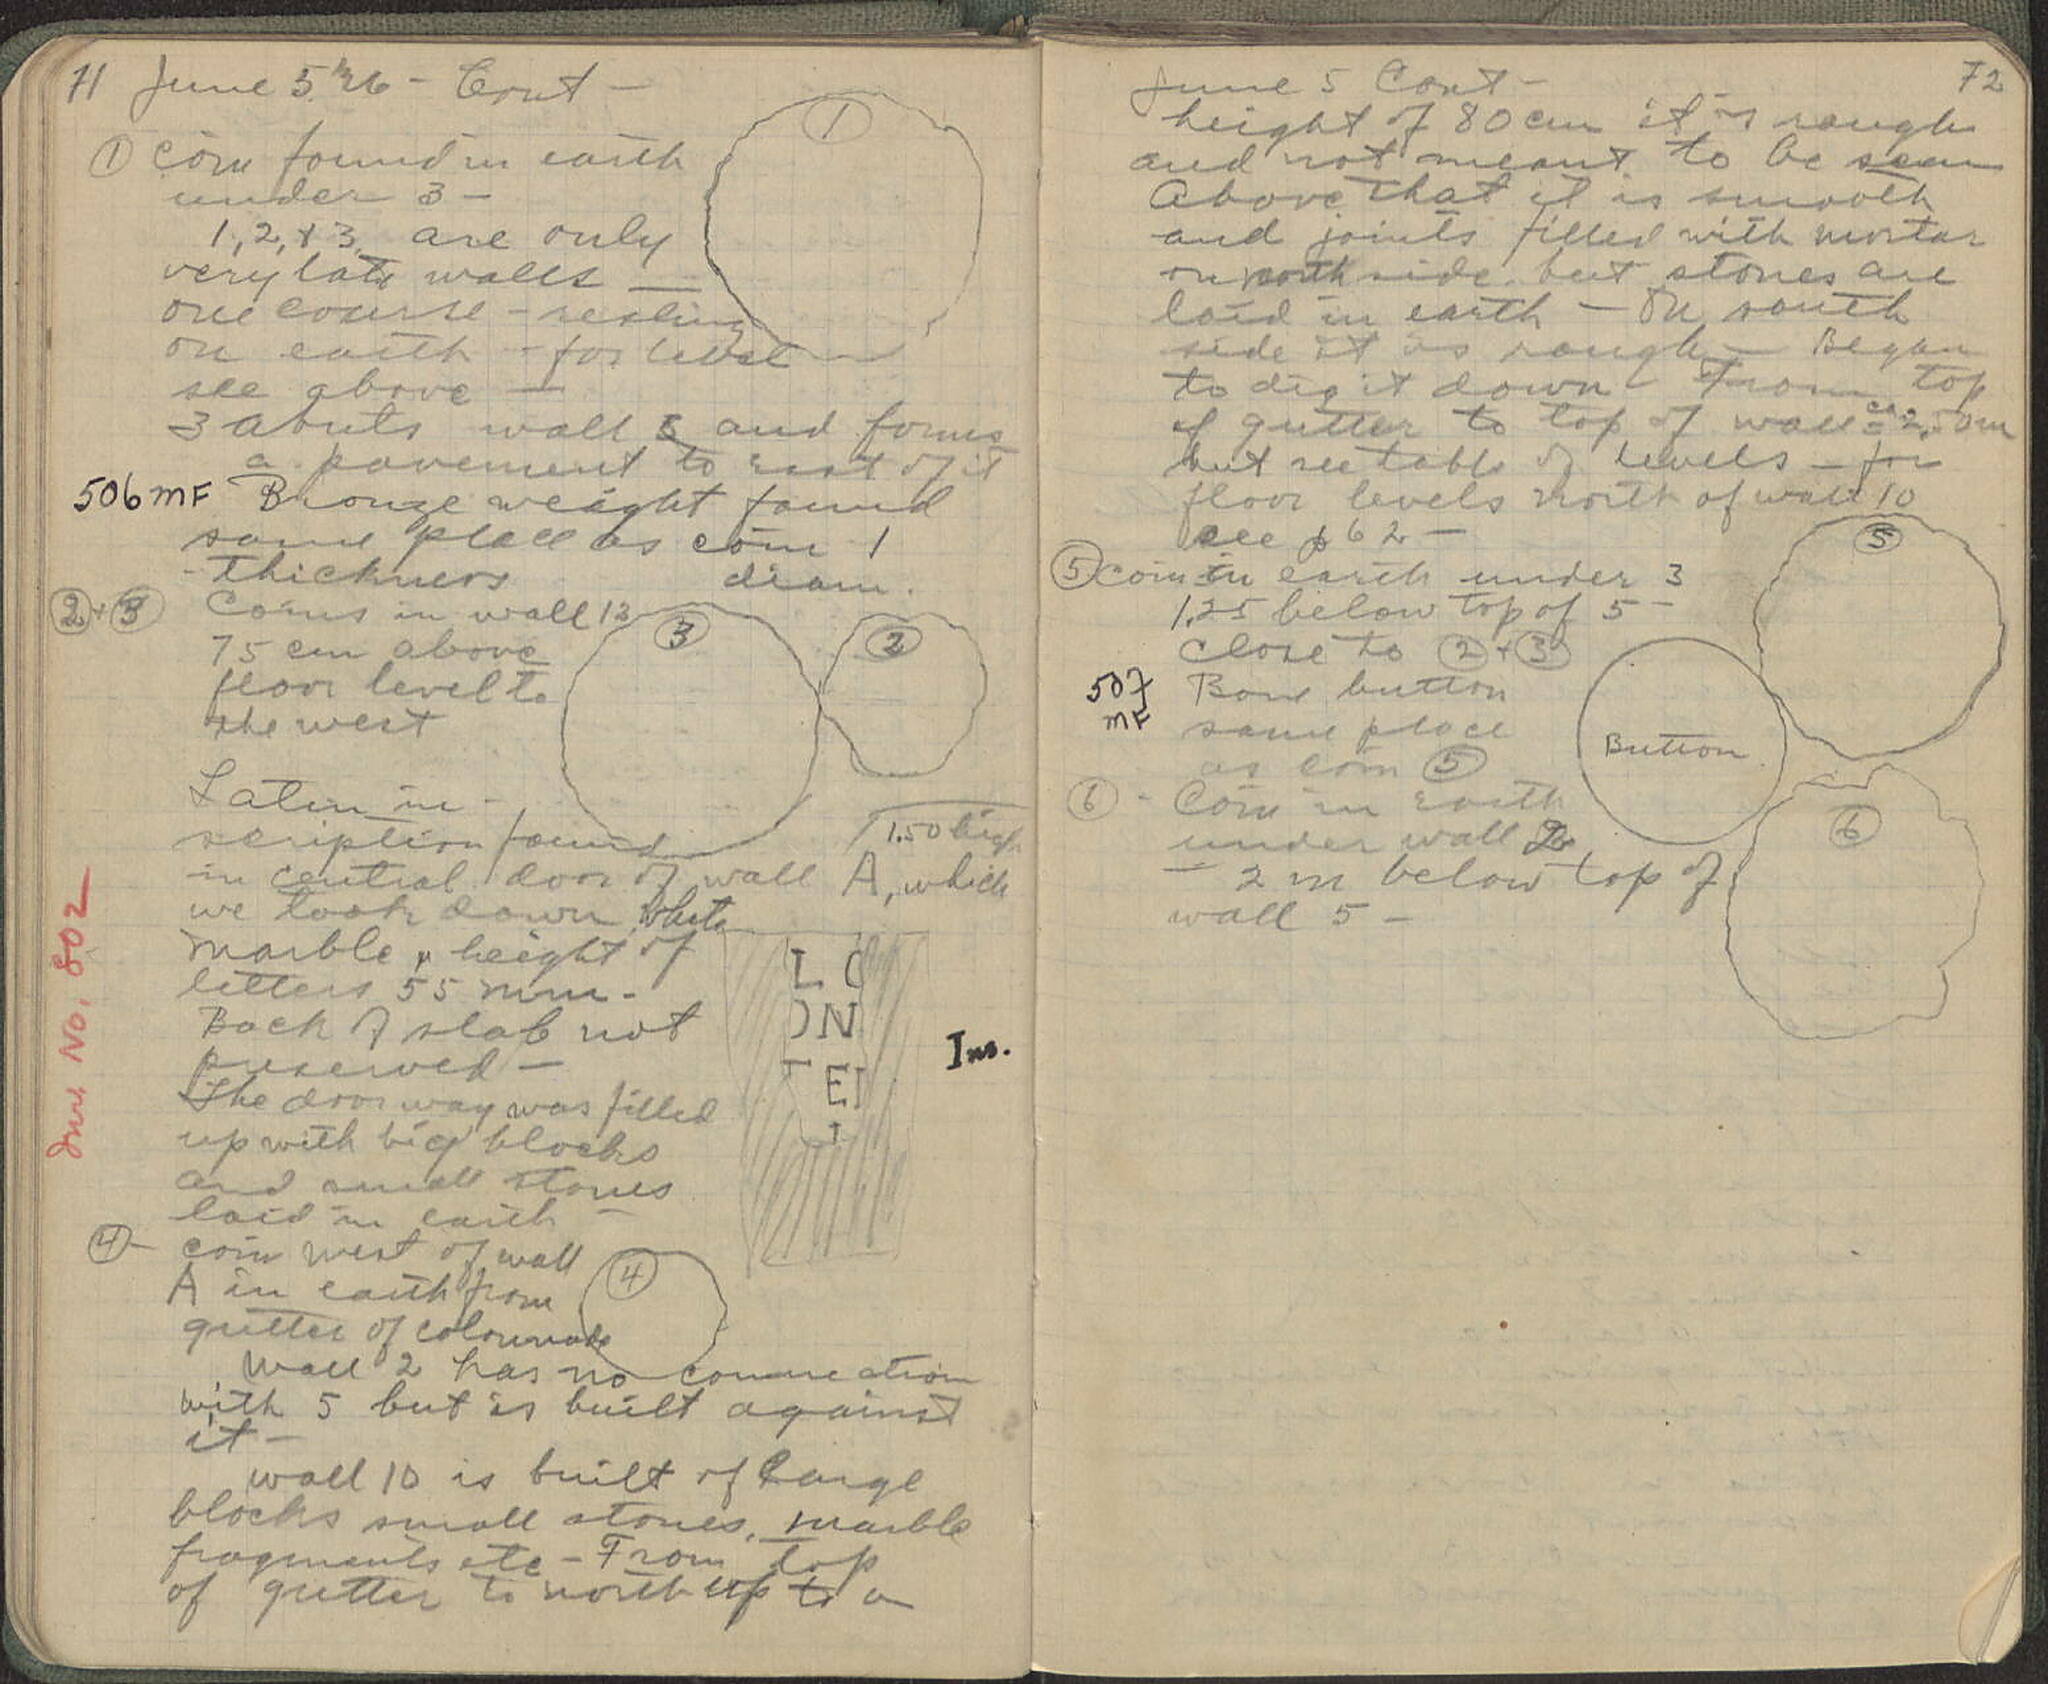 71 June 5 '26 - Cont -
① Coin found in earth
under 3 -
1, 2, + 3 are only
very late walls —
one course - resting
on earth - for level
see above —
3 abuts wall 5 and forms
a pavement to east of it
506 MF Bronze weight found
same place as coin 1
- thickness diam.
② + ③ Coins in wall 12
75 cm above
floor level to
the west
Latin in-
scription found
in central door of wall A, which
1.50 high
we took down white
marble, height of
letters 55 mm -
Back of slab not
preserved —
The doorway was filled
up with big blocks
and small stones
laid in earth —
④ - coin west of wall
A in earth from
gutter of colonnade
Wall 2 has no connection
with 5 but is built against
it -
Wall 10 is built of large
blocks small stones, marble
fragments etc - From top
of gutter to north up to a
①
③ ②
L C
ON
TEI
Ins.
④
Inv. No. 802
June 5 Cont - 72
height of 80 cm it is rough
and not meant to be seen
Above that it is smooth
and joints filled with mortar
on north side but stones are
laid in earth — On south
side it is rough — Began
to dig it down - From top
of gutter to top of wall = ca 2.50 m
but see table of levels - for
floor levels north of wall 10
see p 62 -
⑤ coin in earth under 3
1.25 below top of 5 -
close to ② + ③
507 MF Bone button
same place
as coin ⑤
⑥ - Coin in earth
under wall 2
- 2 m below top of
wall 5 -
⑤
Button
⑥